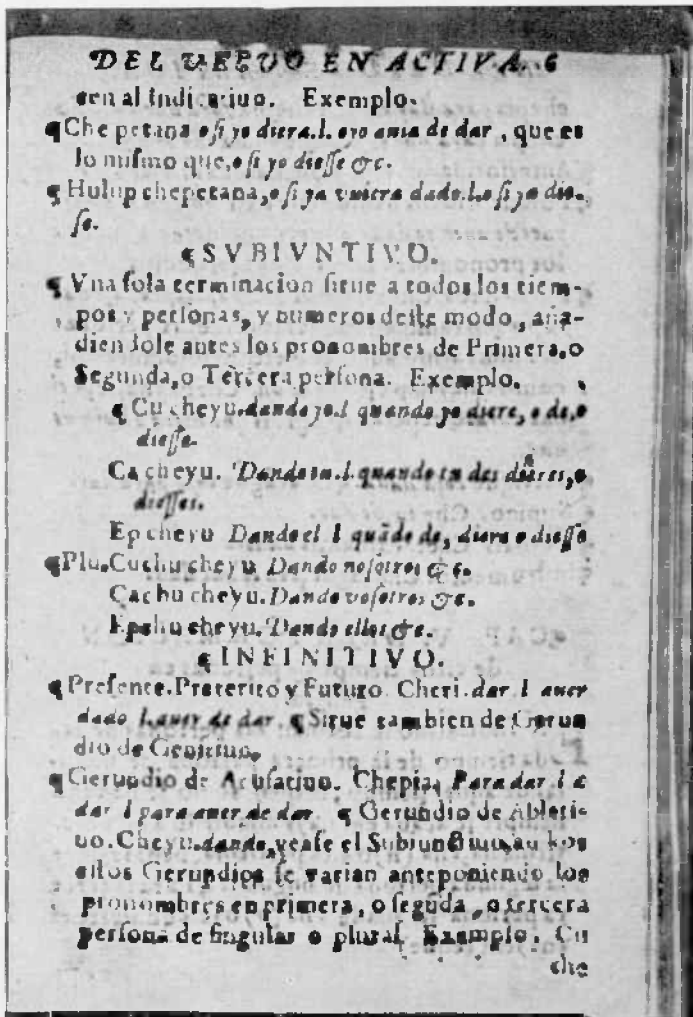 DEL VERVO EN ACTIVA. 6
en al Indicatiuo. Exemplo.
¶ Che petana o ſi yo diera. l. o yo auia de dar, que es
lo miſmo que, o ſi yo dieſſe &c.
¶ Hulup chepetana, o ſi yo vuiera dado. l. o ſi yo dieſ-
ſe.
¶ SVBIVNTIVO.
¶ Vna ſola terminacion ſirue a todos los tiem-
pos y perſonas, y numeros deſte modo, aña-
diendole antes los pronombres de Primera, o
Segunda, o Tercera perſona. Exemplo.
¶ Cu cheyu. dando yo. l quando yo diere, o de, o
dieſſe.
Ca cheyu. Dando tu. l. quando tu des dieres, o
dieſſes.
Ep cheyu Dando el l quãdo de, diere o dieſſe
¶ Plu. Cuchu cheyu Dando noſotros &c.
Cachu cheyu. Dando voſotros &c.
Epchu cheyu. Dando ellos &c.
¶ INFINITIVO.
¶ Preſente. Preterito y Futuro Cheri. dar. l auer
dado l. auer de dar. ¶ Sirue tambien de Gerun
dio de Genitiuo.
¶ Gerundio de Acuſatiuo. Chepia. Para dar l a
dar l para auer de dar. ¶ Gerundio de Ablati-
uo. Cheyu. dando, veaſe el Subiunctiuo,
Gerundios ſe varian anteponiendo los
pronombres en primera, o ſegũda, o tercera
perſona de ſingular o plural. Exemplo. Cu
che